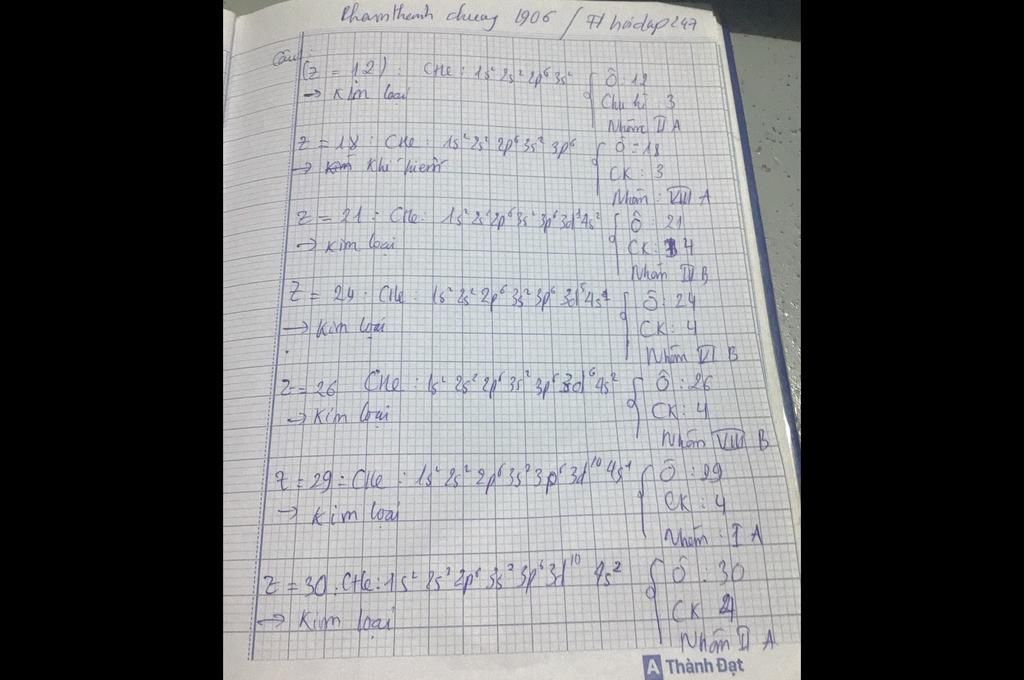 Phamthanh chuong 1906 / 71 hoidap247
Câu1:
(Z = 12): CHe: 1s² 2s² 2p⁶ 3s² { Ô: 12
→ Kim loại Chu kì: 3
Nhóm II A
Z = 18: CHe: 1s² 2s² 2p⁶ 3s² 3p⁶ { Ô = 18
→ Khí hiếm CK: 3
Nhóm: VIII A
Z = 21: CHe: 1s² 2s² 2p⁶ 3s² 3p⁶ 3d¹ 4s² { Ô: 21
→ Kim loại CK: 4
Nhóm III B
Z = 24: CHe: 1s² 2s² 2p⁶ 3s² 3p⁶ 3d⁵ 4s¹ { Ô: 24
→ Kim loại CK: 4
Nhóm VI B
Z = 26 CHe: 1s² 2s² 2p⁶ 3s² 3p⁶ 3d⁶ 4s² { Ô: 26
→ Kim loại CK: 4
Nhóm VIII B
Z = 29: CHe: 1s² 2s² 2p⁶ 3s² 3p⁶ 3d¹⁰ 4s¹ { Ô: 29
→ Kim loại CK: 4
Nhóm: I A
Z = 30: CHe: 1s² 2s² 2p⁶ 3s² 3p⁶ 3d¹⁰ 4s² { Ô: 30
→ Kim loại CK 4
Nhóm II A
A Thành Đạt